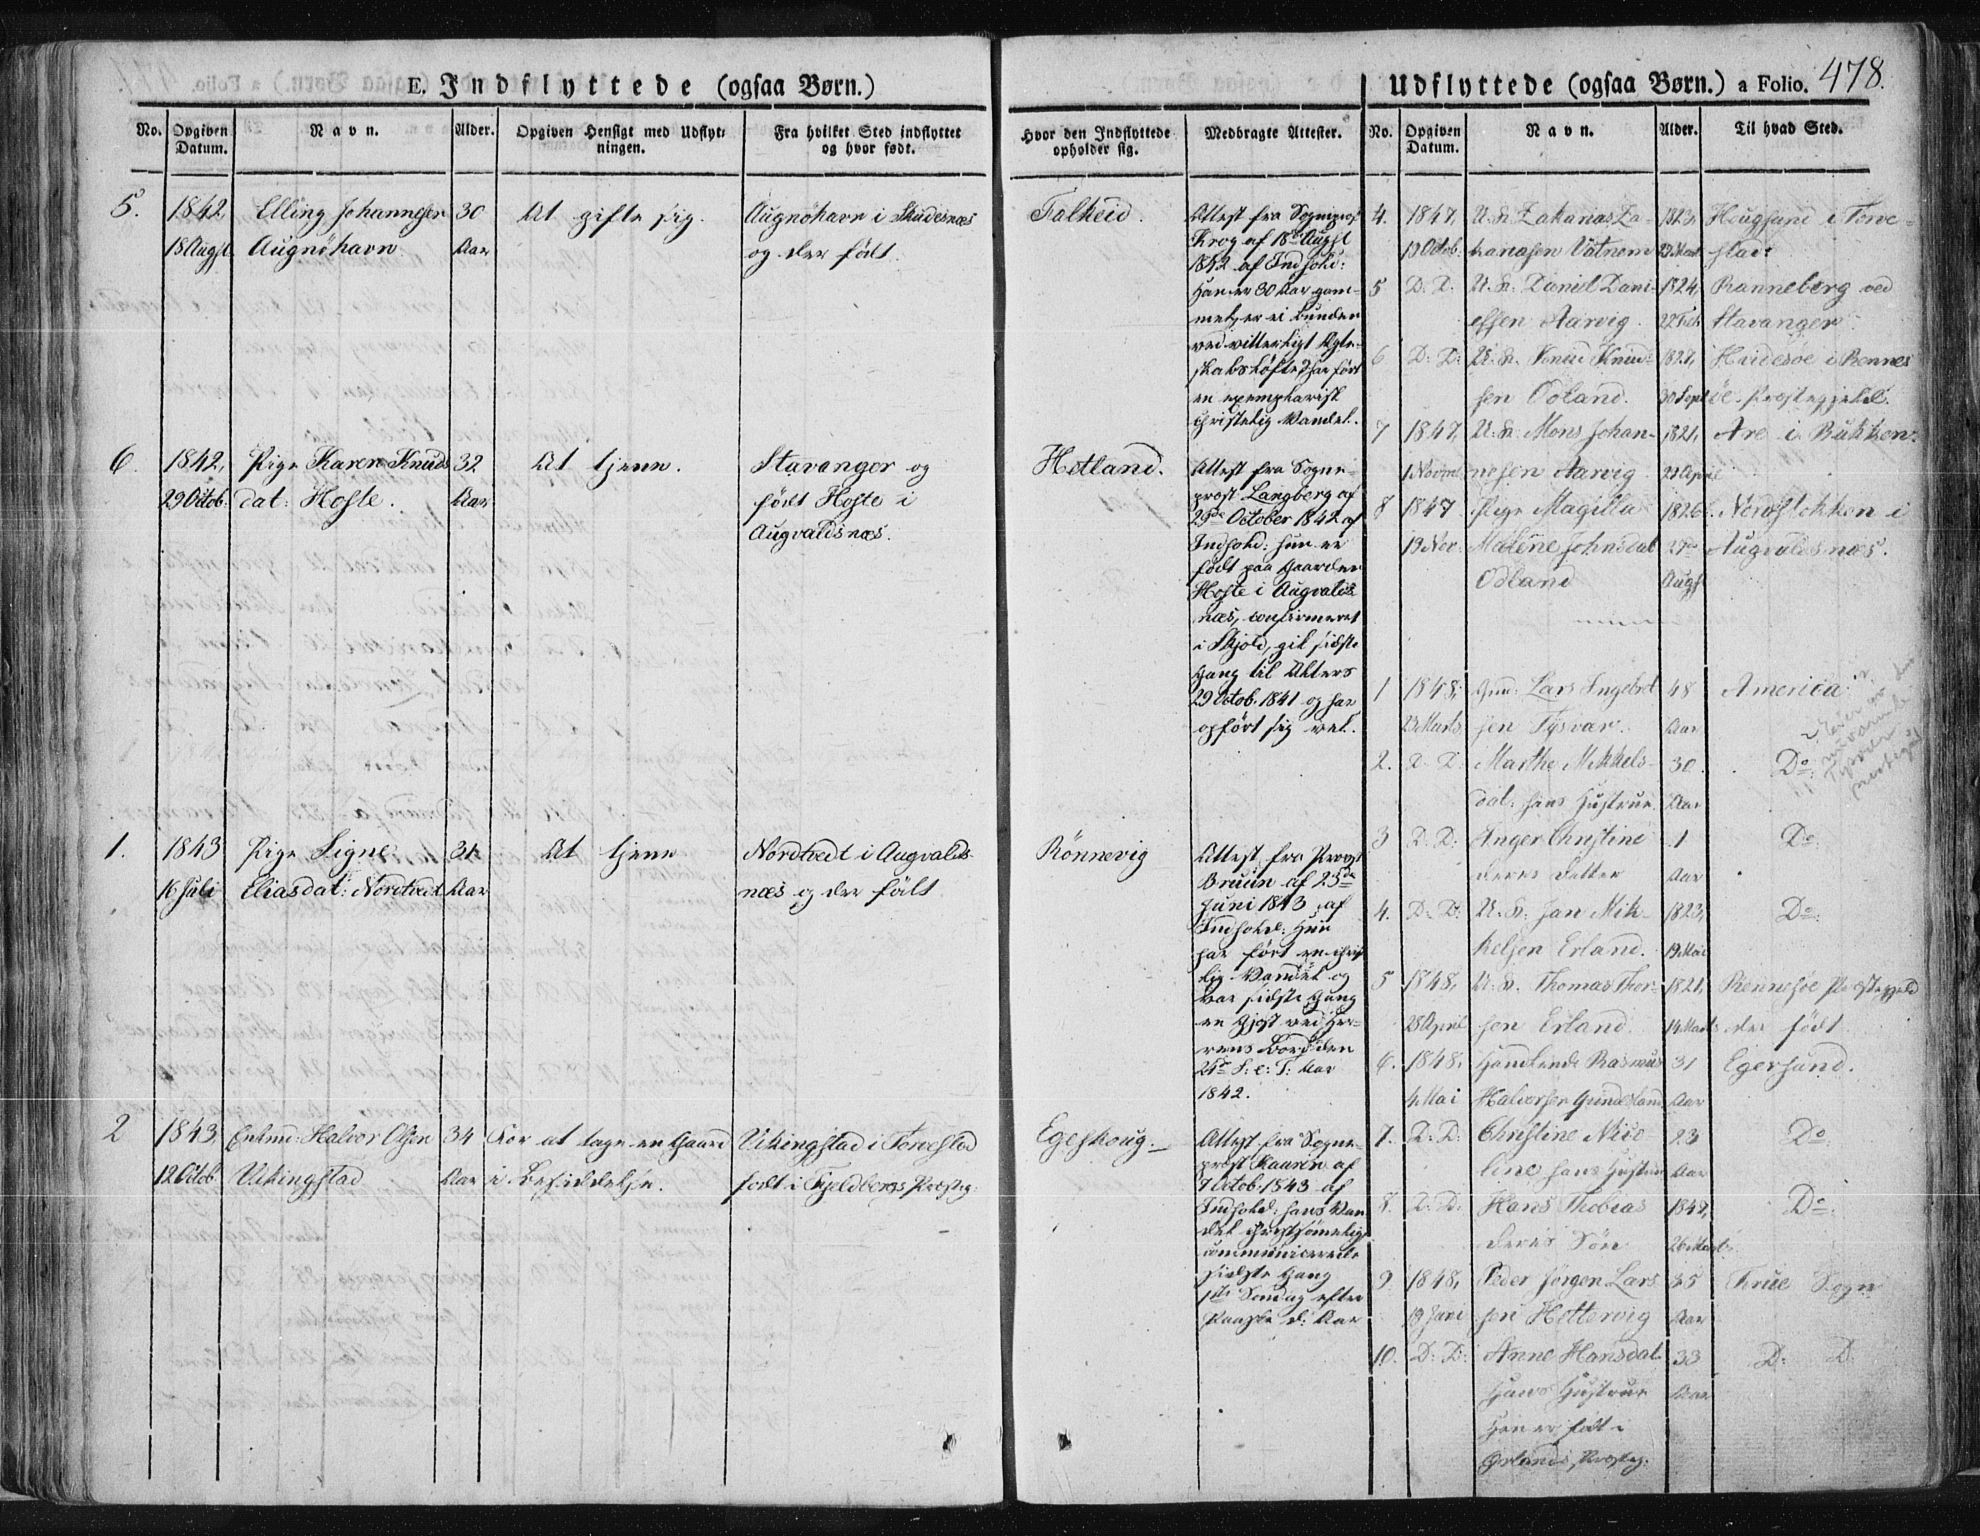 E. Indflyttede (ogsaa Børn.)
No.
Opgiven Datum.
Navn.
Alder.
Opgiven Hensigt med Udflyt-
ningen.
Fra hvilket Sted indflyttet
og hvor født.
Hvor den Indflyttede
opholder sig.
Medbragte Attester.
5.
1842
18 Augst
Elling Johannesen
Augnöhavn
30
Aar
At gifte sig.
Augnöhavn i Skudesnæs
og der födt.
Falkeid.
Attest fra Sogneprest
Krog af 18de Augst
1842 af Indhold:
Han er 30 Aar gam-
mel, er ei bunden
ved vitterligt Ægte-
skabslöfte, har fört
en exemplarisk
christelig Vandel.
6.
1842,
29 Octob.
Pige Karen Knuds
dat: Hoste.
32
Aar
At tjene.
Stavanger og
födt Hoste i
Augvaldsnæs.
Hetland.
Attest fra Sogne-
prest Langberg af
29de October 1842 af
Indhold: hun er
födt paa Gaarden
Hoste i Augvalds
næs, confirmeret
i Skjold, gik sidste
Gang til Alters
29 Octob. 1841 og har
opfört sig vel.
1.
1843
16 Juli
Pige Signe
Eliasdat: Nordtvedt
31
Aar
At tjene
Nordtvedt i Augvalds-
næs og der födt
Rönnevig
Attest fra Provst
Bruun af 25de
Juni 1843 af
Indhold: Hun
har fört en christ
lig Vandel og
var sidste Gang
en Gjest ved Her-
rens Bord den
S: e: T: Aar
1842.
2
1843,
12 Octob.
Enkmd: Halvor Olsen
Vikingstad
34
Aar
For at tage en Gaard
i Besiddelse.
Vikingstad i Torvestad
födt i Fjeldbergs Præsteg:
Egeskoug.
Attest fra Sogne-
prest Kaurin af
7 Octob. 1843 af
Indhold: hans Van
del christsömmelig
communicerede
sidste Gang
1ste Söndag efter
Paaske d: Aar
Udflyttede (ogsaa Børn.) a Folio. 478.
No.
Opgiven Datum.
Navn.
Alder.
Til hvad Sted.
4.
1847,
13 Octob.
U. K. Zakarias Za-
kariasen Vatnem
1823,
Hougsund i Torve-
stad:
5
D: D.
U. K. Daniel Dani-
elsen Aarvig.
1824,
22 Feb
Ranneberg ved
Stavanger
6
D: D:
U. K. Knud Knud-
sen Odland.
30 Sept
i Rennes
öe Prestegjeld.
7
1847,
1 Novmr
U. K. Mons Johan-
nesen Aarvig
1821,
21 April
Are i Bukken.
8
1847
19 Nov.
Pige Magilla
Malene Johnsdat
Odland
1826
27de
Augst
Nordstokken i
Augvaldsnæs.
1
1848,
23 Marts
Gmd: Lars Ingebret
sen Tysvar.
48
Aar
America
2.
D: D:
Marthe Mikkels-
dat: hans Hustrue
30
Aar
Do:
3
D: D:
Anger Christine
deres Datter
1
Aar
Do
4.
D: D:
U. K. Jan Mik-
kelsen Erland.
1823,
19 Mai
Do:
5
1848,
28 April
U. K. Thomas Thor-
sen Erland.
1821,
14 Marts
Rennesöe Prestegjeld
der födt
6.
1848,
4 Mai
Handlende Rasmus
Halvorsen
31
Aar
Egersund.
7.
D: D:
Christine Nico
line hans Hustrue
23
Aar
Do
8.
D: D.
Hans Thobias
deres Sön
26 Marts
Do:
9
1848,
19 Juni
Peder Jörgen Lars
sen Hettervig
35
Aar
Sogn
10.
D: D:
Anne Hansdat
Hans Hustrue
Han er födt i
Prestg:
33
Aar
D: D: